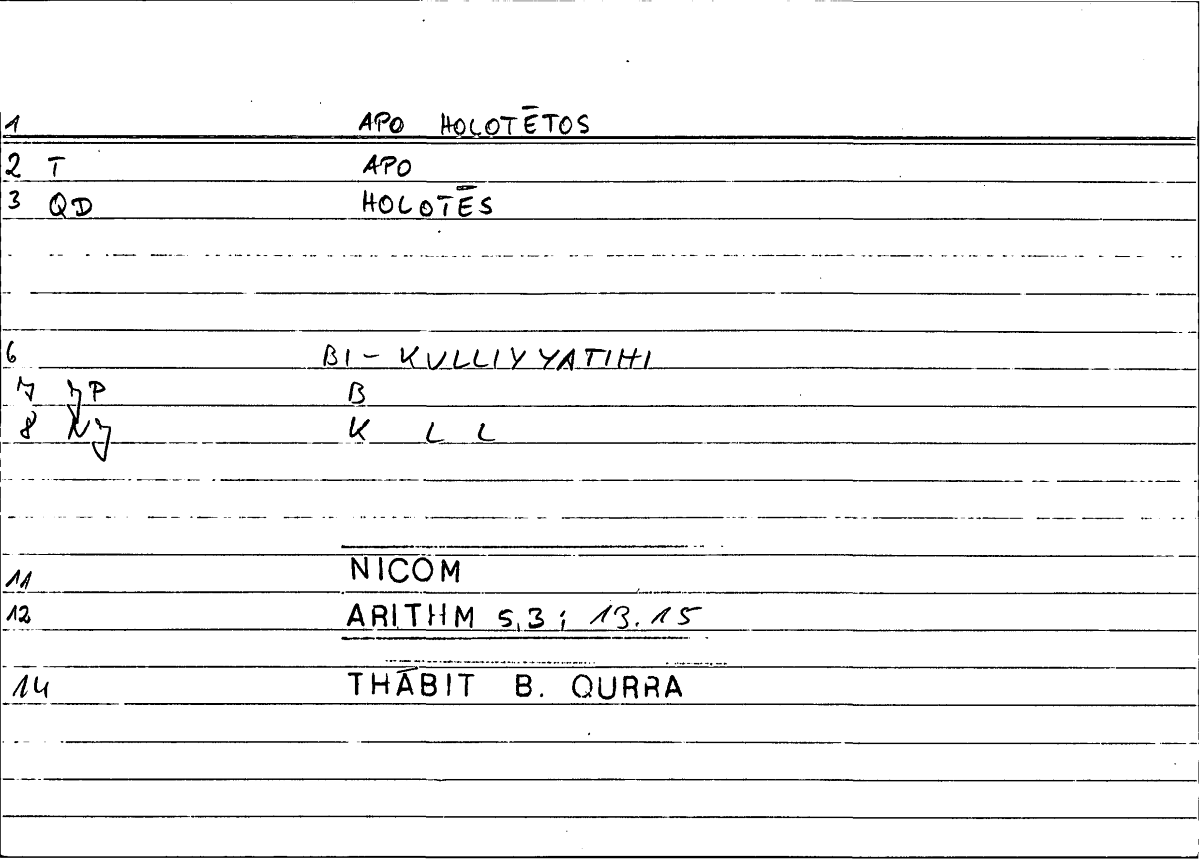 1 APO HOLOTĒTOS
2 T APO
3 QD HOLOTĒS
6 BI - KULLIYYATIHI
7 JP B
8 NJ K L L
11 NICOM
12 ARITHM 5,3 ; 13.15
14 THĀBIT B. QURRA